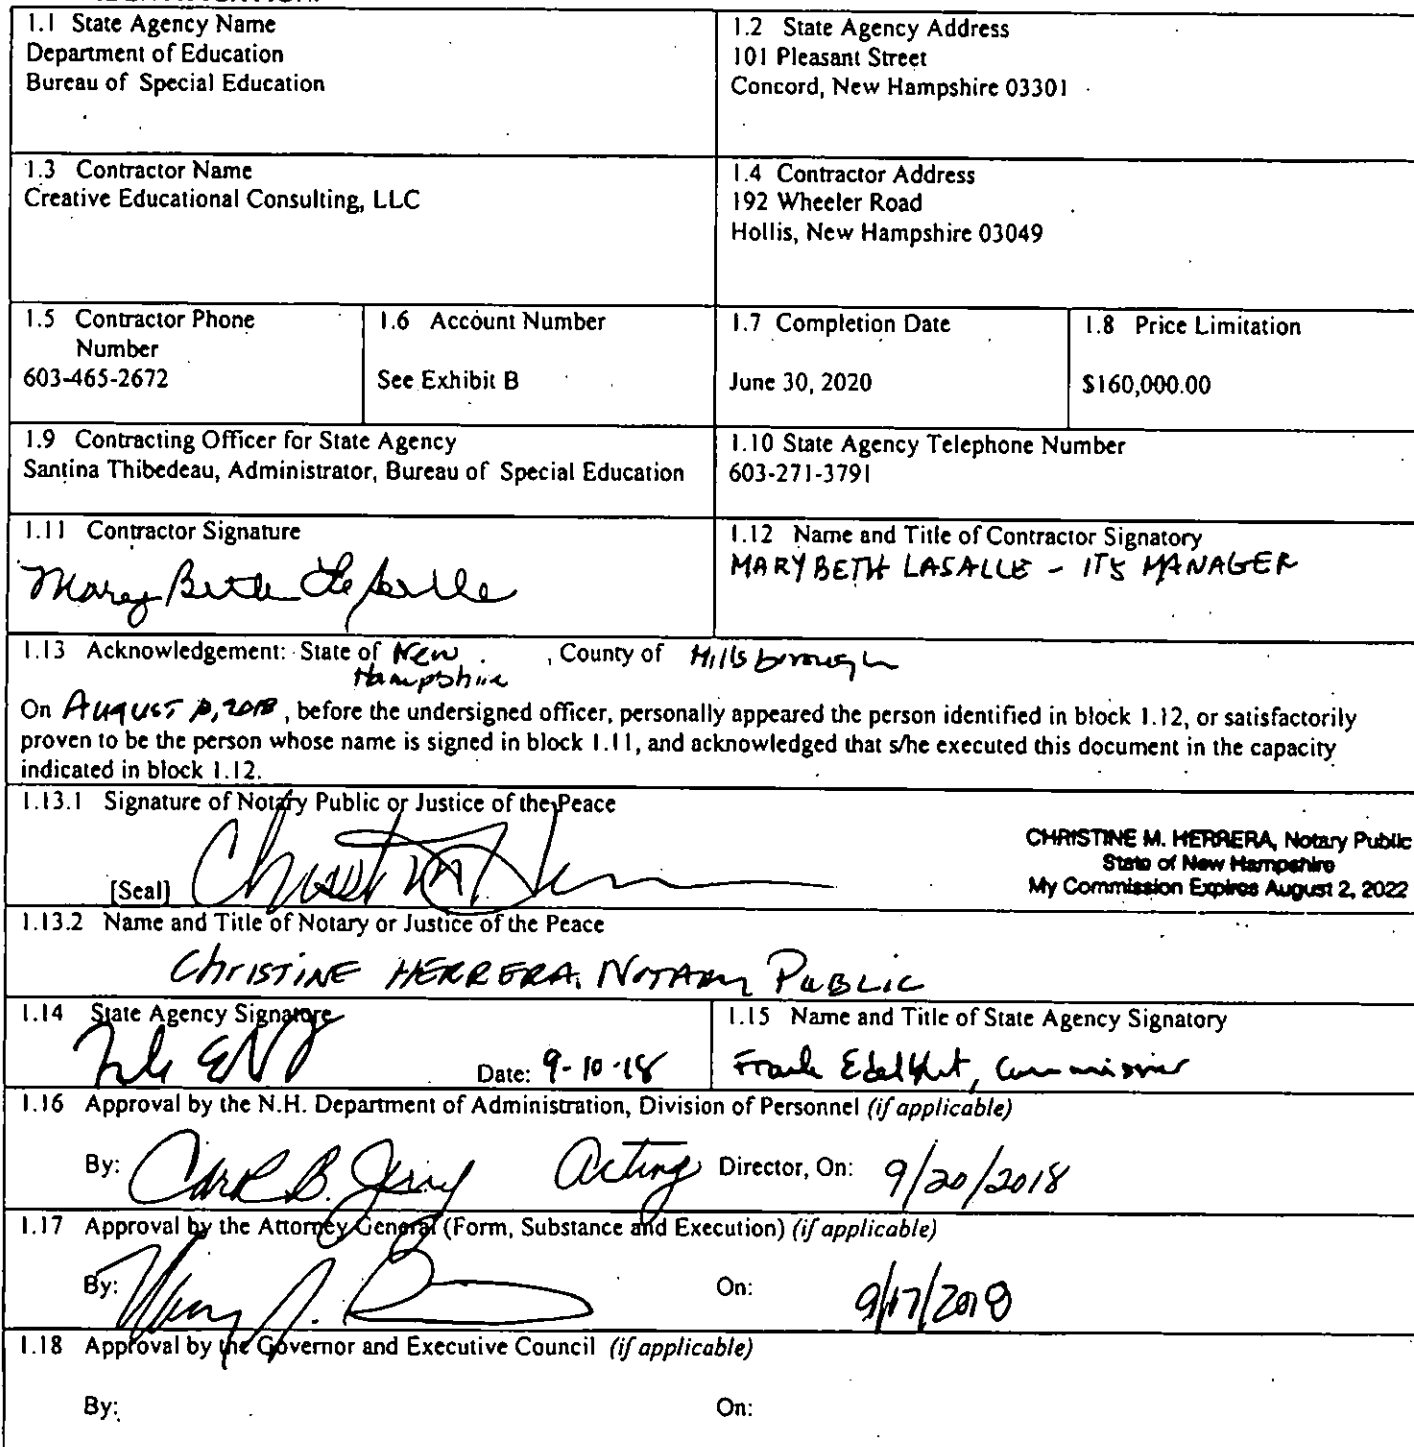 1.1 State Agency Name
Department of Education
Bureau of Special Education
1.2 State Agency Address
101 Pleasant Street
Concord, New Hampshire 03301
1.3 Contractor Name
Creative Educational Consulting, LLC
1.4 Contractor Address
192 Wheeler Road
Hollis, New Hampshire 03049
1.5 Contractor Phone
Number
603-465-2672
1.6 Account Number
See Exhibit B
1.7 Completion Date
June 30, 2020
1.8 Price Limitation
$160,000.00
1.9 Contracting Officer for State Agency
Santina Thibedeau, Administrator, Bureau of Special Education
1.10 State Agency Telephone Number
603-271-3791
1.11 Contractor Signature
Mary Beth LaSalle
1.12 Name and Title of Contractor Signatory
MARY BETH LASALLE - ITS MANAGER
1.13 Acknowledgement: State of New Hampshire, County of Hillsborough
On August , 2018, before the undersigned officer, personally appeared the person identified in block 1.12, or satisfactorily
proven to be the person whose name is signed in block 1.11, and acknowledged that s/he executed this document in the capacity
indicated in block 1.12.
1.13.1 Signature of Notary Public or Justice of the Peace
[Seal]
CHRISTINE M. HERRERA, Notary Public
State of New Hampshire
My Commission Expires August 2, 2022
1.13.2 Name and Title of Notary or Justice of the Peace
CHRISTINE HERRERA, NOTARY PUBLIC
1.14 State Agency Signature
Date: 9-10-18
1.15 Name and Title of State Agency Signatory
Frank Edelblut, Commissioner
1.16 Approval by the N.H. Department of Administration, Division of Personnel (if applicable)
By: Acting Director, On: 9/20/2018
1.17 Approval by the Attorney General (Form, Substance and Execution) (if applicable)
By: On: 9/17/2018
1.18 Approval by the Governor and Executive Council (if applicable)
By: On: